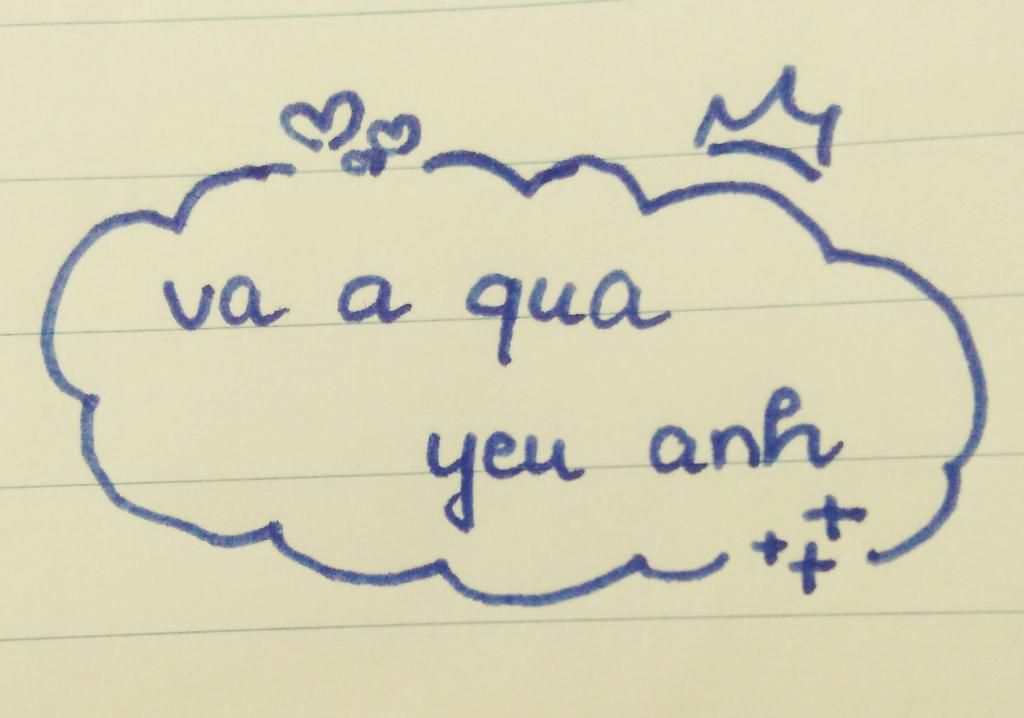 va a qua
yeu anh